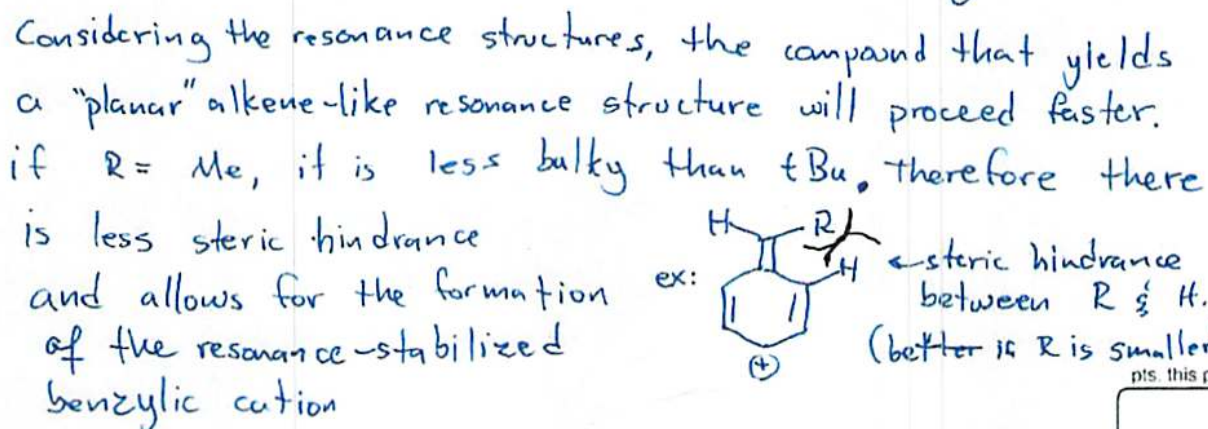 Considering the resonance structures, the compound that yields
a "planar" alkene-like resonance structure will proceed faster.
if R = Me, it is less bulky than tBu. therefore there
is less steric hindrance
and allows for the formation
of the resonance-stabilized
benzylic cation
ex:
H R
H ← steric hindrance
between R & H.
(better is R is smaller
⊕
pts. this p